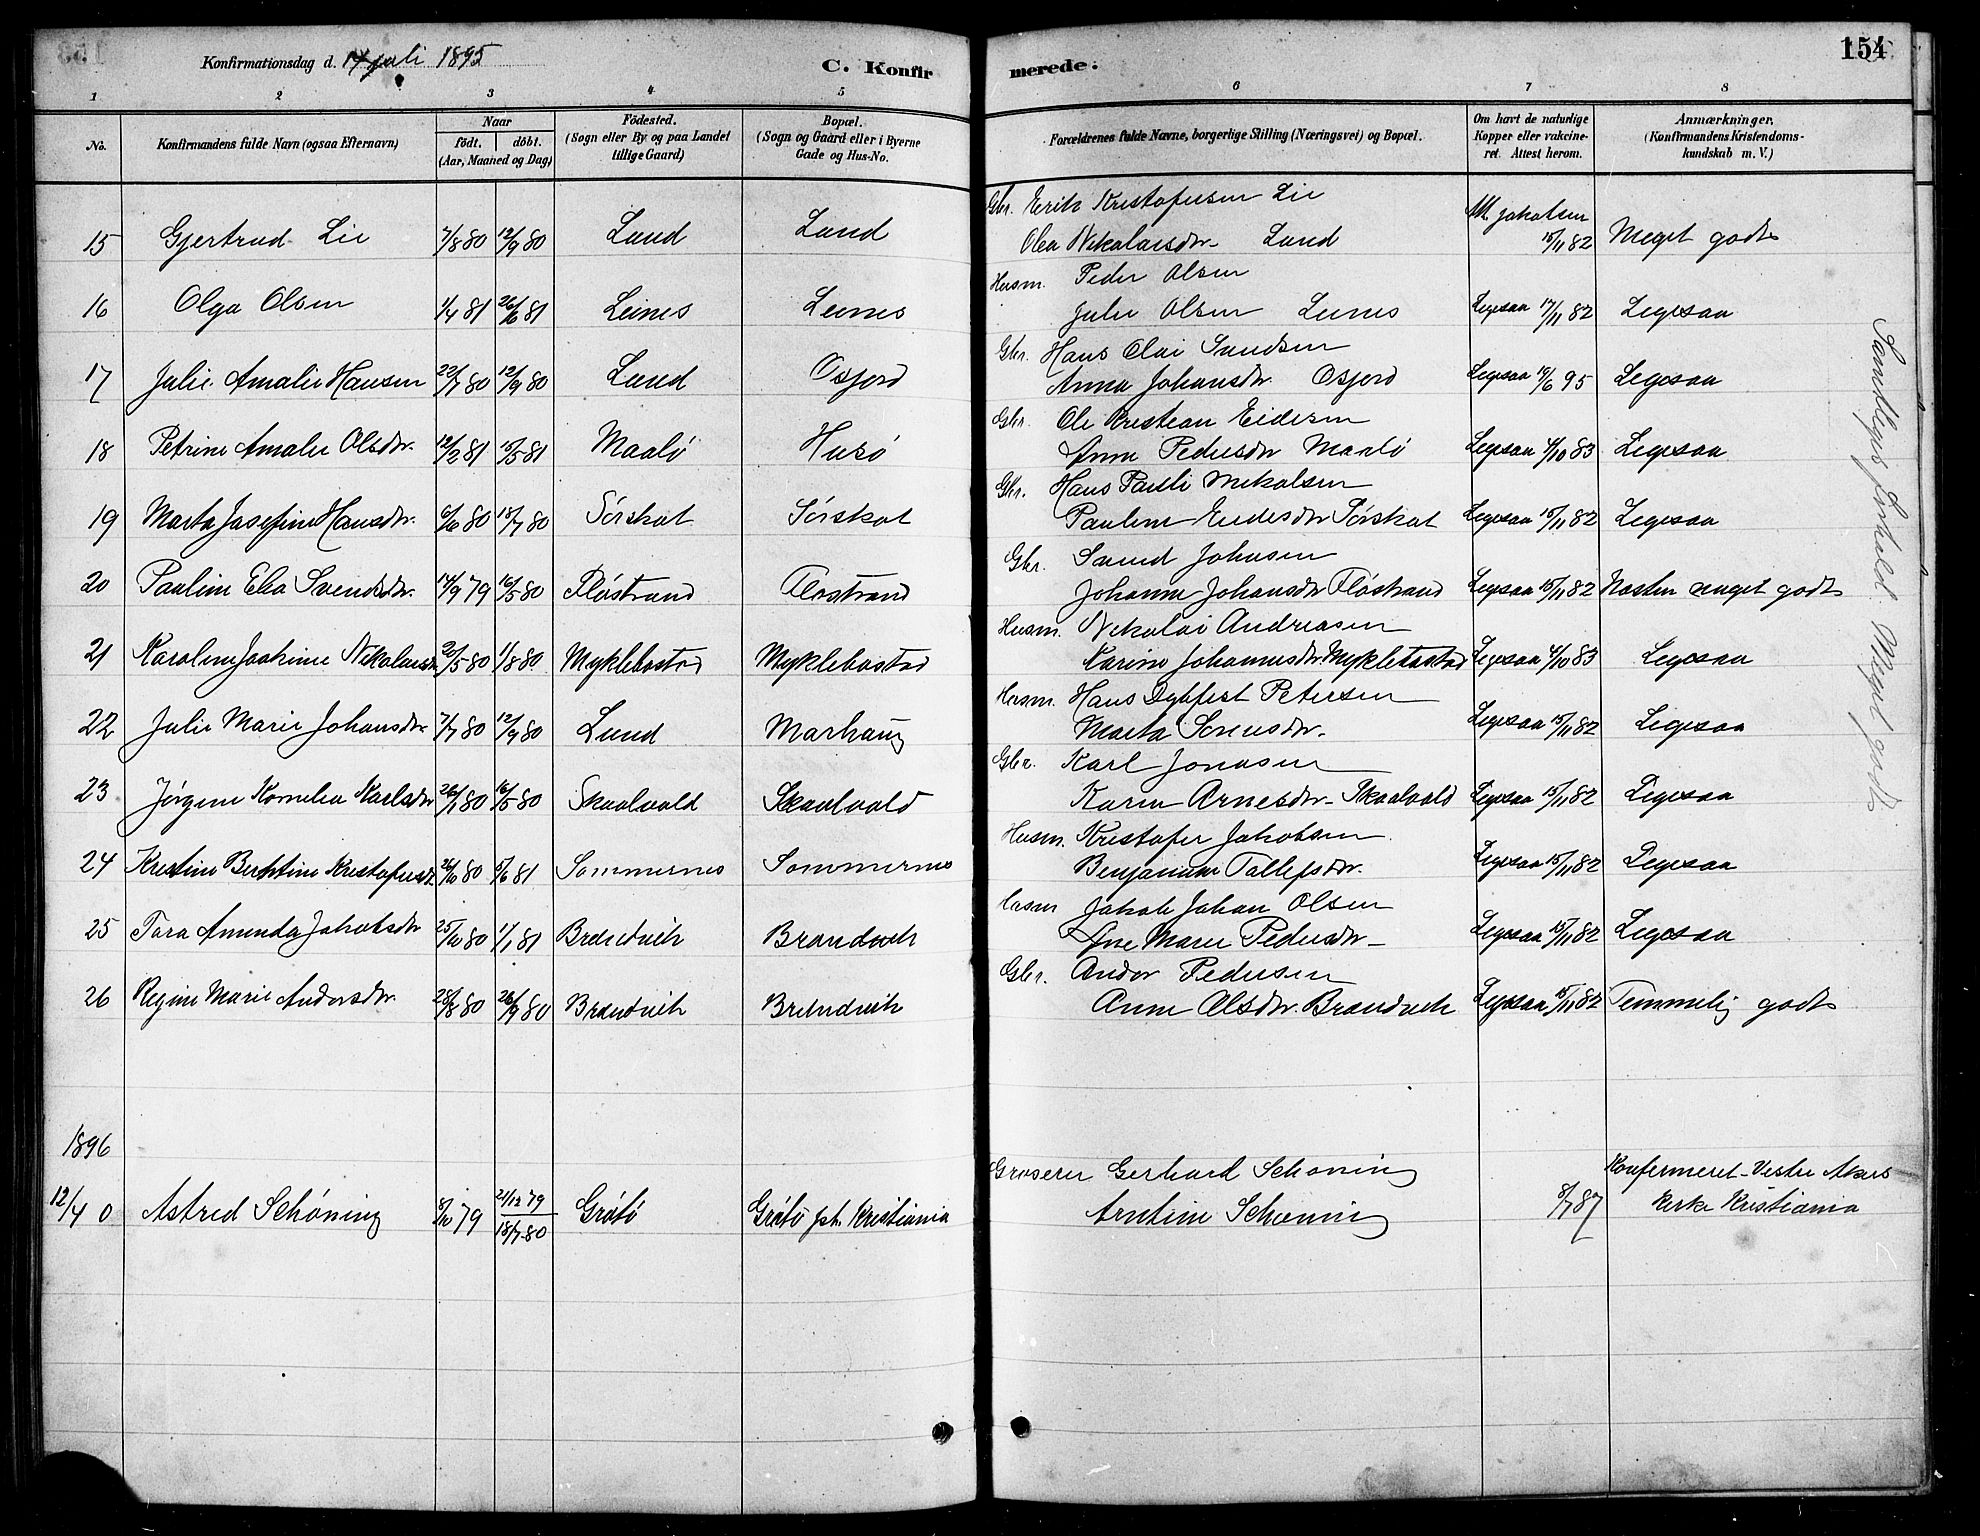 Konfirmationsdag d. 14 juli 1895
C. Konfirmerede.
154
1 2 3 4 5 6 7 8
No.
Konfirmandens fulde Navn (ogsaa Efternavn)
Naar
födt. döbt.
(Aar, Maaned og Dag)
Födested.
(Sogn eller By og paa Landet
tillige Gaard)
Bopæl.
(Sogn og Gaard eller i Byerne
Gade og Hus-No.
Forældrenes fulde Navne, borgerlige Stilling (Næringsvei) og Bopæl.
Om havt de naturlige
Kopper eller vakcine-
ret. Attest herom.
Anmærkninger.
(Konfirmandens Kristendoms-
kundskab m. V.)
Gbr. Erik Kristofersen Lie
15 Gjertrud Lie 7/8 80 12/9 80 Lund Lund Olea Nikolaisdr. Lund Jakobsen 15/11 82 Meget godt
Husm. Peder Olsen
16 Olga Olsen 1/4 81 26/6 81 Leines Leines Julie Olsen Leines Legesaa 17/11 82 Legesaa
Gbr. Hans Olai Sundsen
17 Julie Amalie Hansen 22/7 80 12/9 80 Lund Osfjord Anna Johansdr. Osfjord Legesaa 19/6 95 Legesaa
Gbr. Ole Kristean Eidesen
18 Petrine Amalie Olsdr. 12/2 81 15/5 81 Maalö Husö Anne Pedersdr Maalö Legesaa 4/10 83 Legesaa
Gbr. Hans Paseli Nikolsen
19 Marta Josefine Hansdr. 6/6 80 18/7 80 Sörskot Sörskot Pauline Eidesdr Sörskot Legesaa 15/11 82 Legesaa
Gbr. Svend Johnsen
20 Pauline Elea Svendsdr. 14/9 79 16/5 80 Flöstrand Flöstrand Johanna Johansdr Flöstrand Legesaa 15/11 82 Næsten meget godt
Husm. Nikolai Andreasen
21 Karoline Joakime Nikolaisdr 2/5 80 1/8 80 Myklebostad Myklebostad Karine Johannesdr Myklebostad Legesaa 4/10 83 Legesaa
Husm. Hans Dybfest Petersen
22 Julie Marie Johansdr 7/7 80 12/9 80 Lund Marhaug Marta Sörensdr. Legesaa 15/11 82 Legesaa
Gbr. Karl Jonasen
23 Jörgine Kornelia Karlsdr 26/1 80 16/5 80 Skaalvold Skaalvold Karen Arnesdr. Skaalvold Legesaa 15/11 82 Legesaa
Husm. Kristofer Jakobsen
24 Kristine Berntine Kristofersdr 26/10 80 5/6 81 Sommernes Sommernes Benjamine Tollefsdr. Legesaa 15/11 82 Legesaa
Husm Jakob Johan Olsen
25 Tora Amunda Jakobsdr 25/10 80 1/1 81 Brændvik Brændvik Ane Marie Pedersdr Legesaa 15/11 82 Legesaa
Gbr. Andor Pedersen
26 Regine Marie Andorsdr. 28/8 80 26/9 80 Brændvik Brændvik Anne Olsdr. Brændvik Legesaa 15/11 82 Temmelig godt
Samtliges forhold Meget godt
1896
Groserer Gerhard Schöning Konfirmeret Vestre Akers
12/4 0 Astred Schöning 5/10 79 21/12 79 Grötö Grötö pt. Kristiania Arntine Schöning 8/7 87 Kirke Kristiania
18/7 80